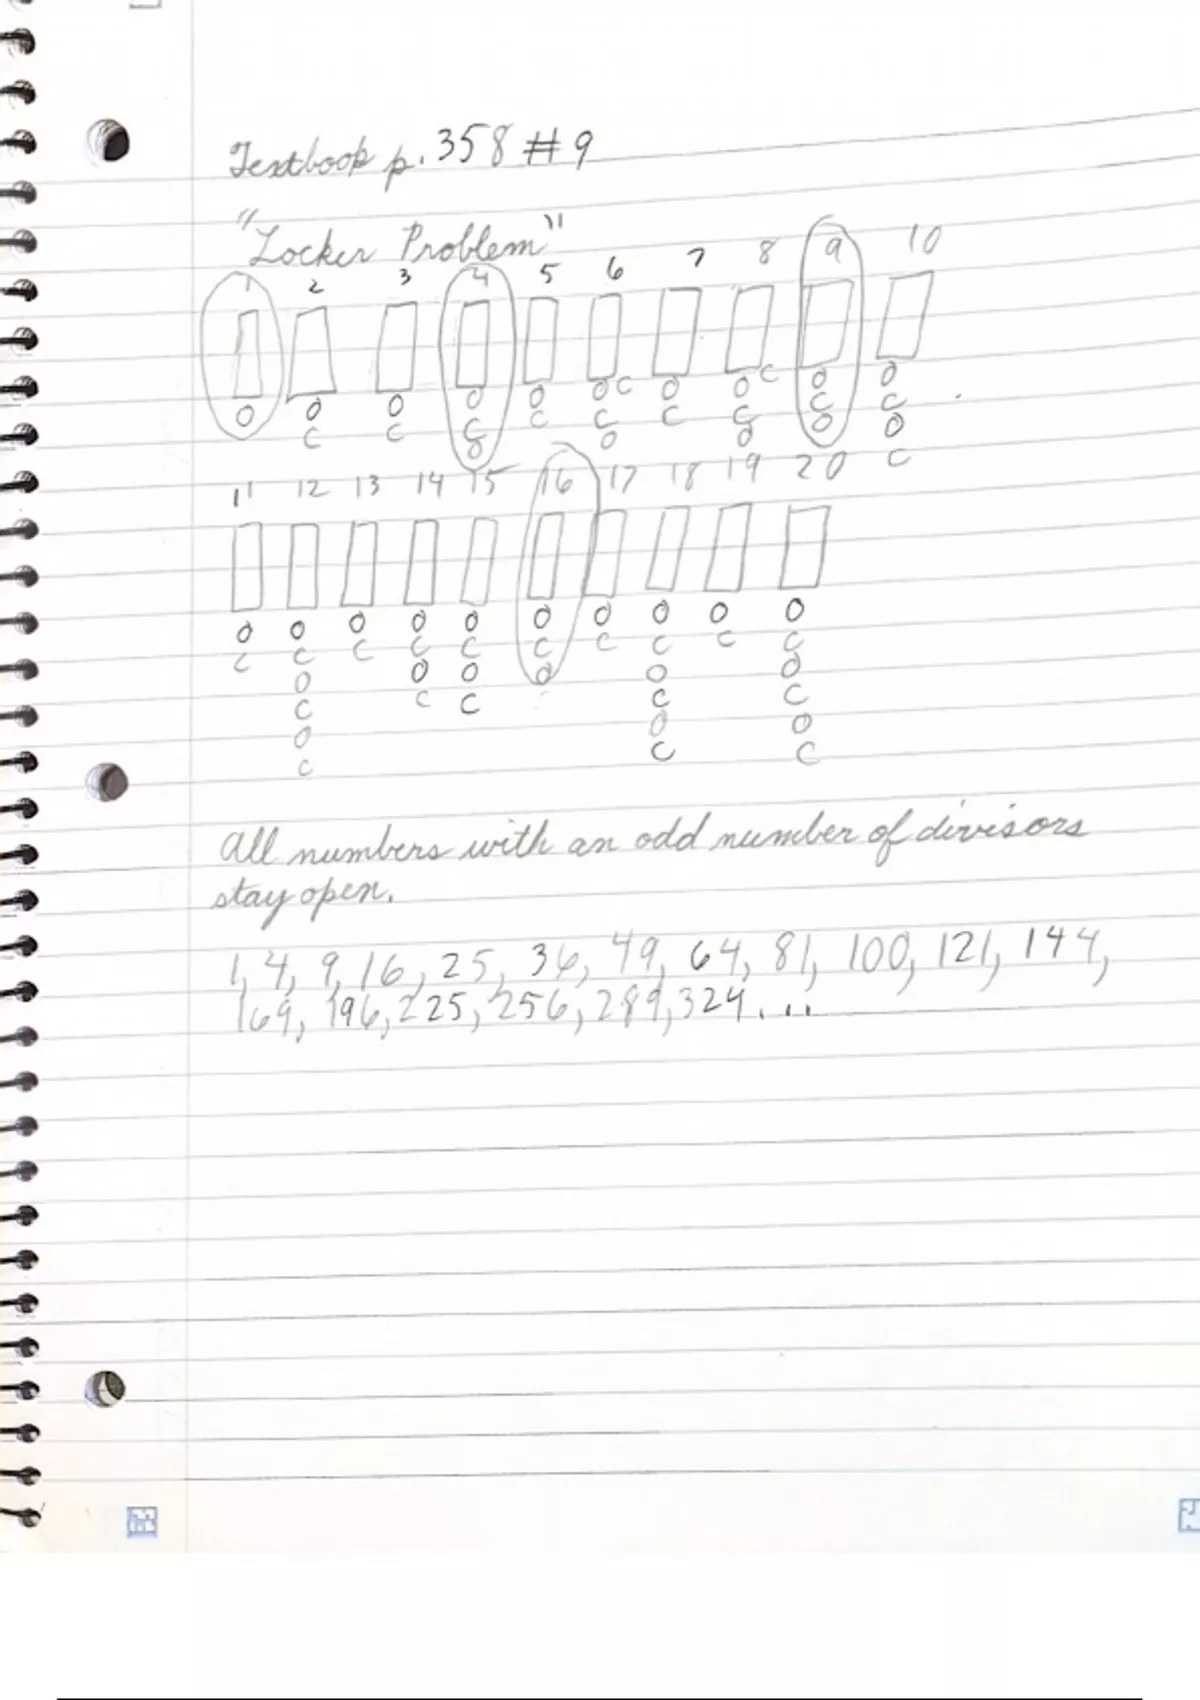 Textbook p. 358 # 9
"Locker Problem"
1 2 3 4 5 6 7 8 9 10
O O O O O O C O O C O O
C C C C C C C C C
O O O O O
C
11 12 13 14 15 16 17 18 19 20
O O O O O O O O O O
C C C C C C C C C C
O O O O O O
C C C C C
O O O
C C C
All numbers with an odd number of divisors
stay open.
1, 4, 9, 16, 25, 36, 49, 64, 81, 100, 121, 144,
169, 196, 225, 256, 289, 324....